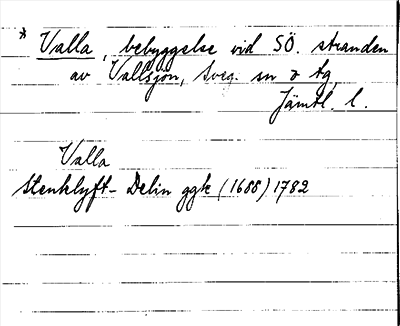 * Valla, bebyggelse vid SÖ. stranden
av Vallsjön, Sveg. sn o tg,
Jämtl. l.
Valla
Stenklyft - Delin ggk (1688) 1782